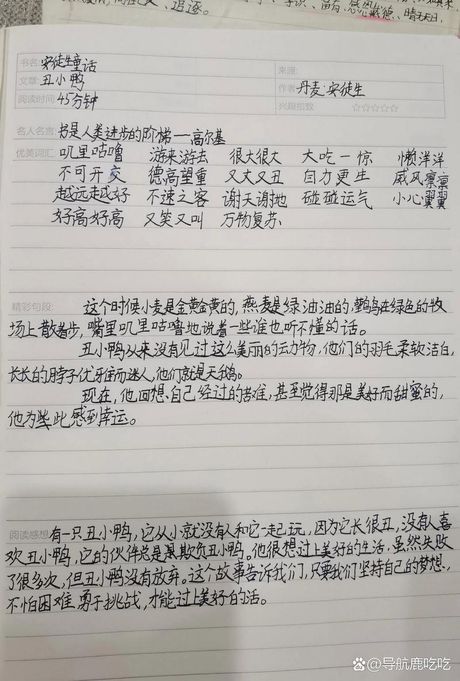 追逐。
书名: 安徒生童话
来源:
文章: 丑小鸭
作者: 丹麦:安徒生
阅读时间: 45分钟
兴趣指数: ☆☆☆☆☆
名人名言: 书是人类进步的阶梯——高尔基
优美词汇: 叽里咕噜 游来游去 很大很大 大吃一惊 懒洋洋
不可开交 德高望重 又大又丑 自力更生 威风凛凛
越远越好 不速之客 谢天谢地 碰碰运气 小心翼翼
好高好高 又笑又叫 万物复苏、
精彩句段: 这个时候小麦是金黄金黄的,燕麦是绿油油的,鹳鸟在绿色的牧
场上散着步,嘴里叽里咕噜地说着一些谁也听不懂的话。
丑小鸭从来没有见过这么美丽的动物,他们的羽毛柔软洁白,
长长的脖子优雅而迷人,他们就是天鹅。
现在,他回想自己经过的苦难,甚至觉得那是美好而甜蜜的,
他为些此感到幸运。
阅读感想: 有一只丑小鸭,它从小就没有人和它一起玩,因为它长很丑,没有人喜
欢丑小鸭,它的伙伴总是欺负丑小鸭。他很想过上美好的生活,虽然失败
了很多次,但丑小鸭没有放弃。这个故事告诉我们,只要我们坚持自己的梦想,
不怕困难,勇于挑战,才能过上美好的活。
@导航鹿吃吃